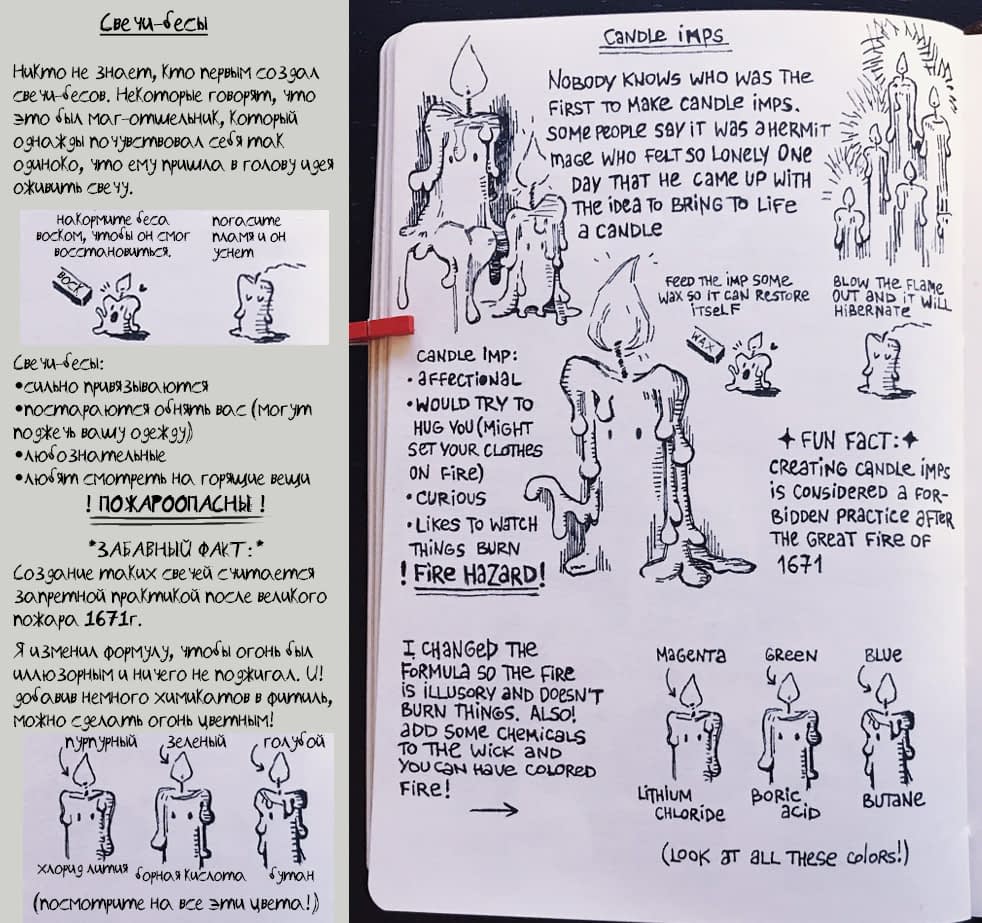 Свечи-бесы
Никто не знает, кто первым создал
свечи-бесов. Некоторые говорят, что
это был маг-отшельник, который
однажды почувствовал себя так
одиноко, что ему пришла в голову идея
оживить свечу.
накормите беса
воском, чтобы он смог
восстановиться.
погасите
пламя и он
уснет
ВОСК
Свечи-бесы:
•сильно привязываются
•постараются обнять вас (могут
поджечь вашу одежду)
•любознательные
•любят смотреть на горящие вещи
! ПОЖАРООПАСНЫ !
*ЗАБАВНЫЙ ФАКТ:*
Создание таких свечей считается
запретной практикой после великого
пожара 1671г.
Я изменил формулу, чтобы огонь был
иллюзорным и ничего не поджигал. И!
добавив немного химикатов в фитиль,
можно сделать огонь цветным!
пурпурный зеленый голубой
хлорид лития борная кислота бутан
(посмотрите на все эти цвета!)
CANDLE IMPS
NOBODY KNOWS WHO WAS THE
FIRST TO MAKE CANDLE IMPS.
SOME PEOPLE SAY IT WAS A HERMIT
MAGE WHO FELT SO LONELY ONE
DAY THAT HE CAME UP WITH
THE IDEA TO BRING TO LIFE
A CANDLE
FEED THE IMP SOME
WAX SO IT CAN RESTORE
ITSELF
WAX
BLOW THE FLAME
OUT AND IT WILL
HIBERNATE
CANDLE IMP:
• AFFECTIONAL
• WOULD TRY TO
HUG YOU (MIGHT
SET YOUR CLOTHES
ON FIRE)
• CURIOUS
• LIKES TO WATCH
THINGS BURN
! FIRE HAZARD!
✦ FUN FACT: ✦
CREATING CANDLE IMPS
IS CONSIDERED A FOR-
BIDDEN PRACTICE AFTER
THE GREAT FIRE OF
1671
I CHANGED THE
FORMULA SO THE FIRE
IS ILLUSORY AND DOESN'T
BURN THINGS. ALSO!
ADD SOME CHEMICALS
TO THE WICK AND
YOU CAN HAVE COLORED
FIRE!
MAGENTA GREEN BLUE
LITHIUM
CHLORIDE
BORIC
ACID
BUTANE
(LOOK AT ALL THESE COLORS!)